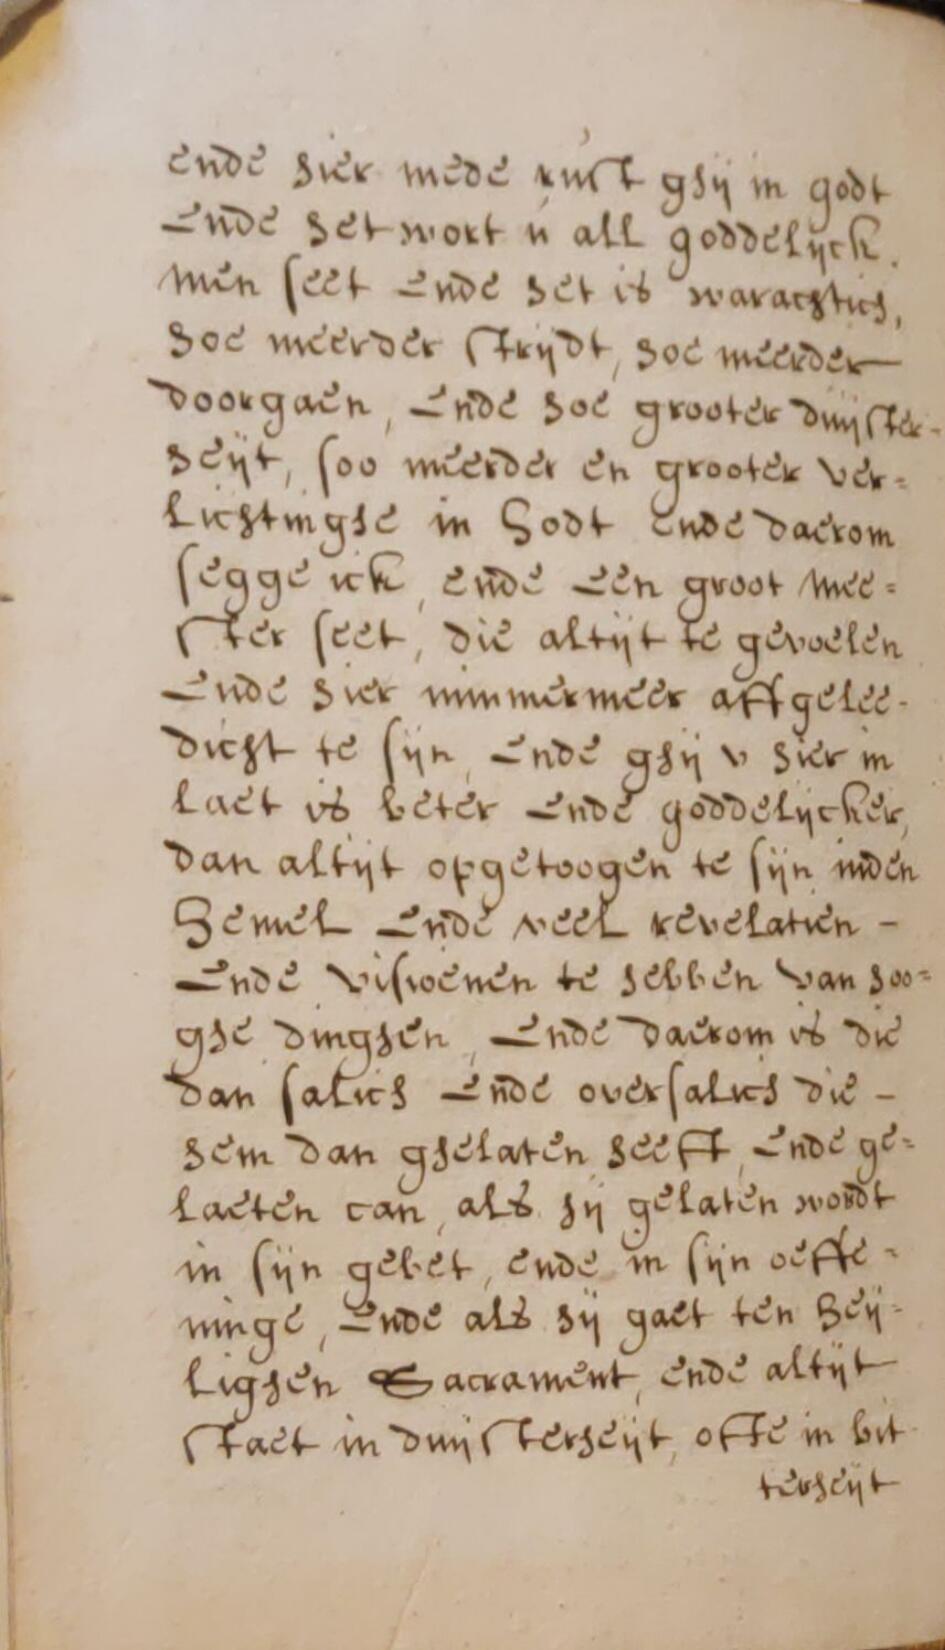 ende hier mede rust ghij in godt
Ende het wort u all goddelijck.
men seet Ende het is warachtich,
hoe meerder strijdt, hoe meerder
doorgaen, Ende hoe grooter duijster-
heijt, soo meerder en grooter ver=
lichtinghe in Godt Ende daerom
segge ick, ende Een groot mee=
ster seet, die altijt te gevoelen
Ende hier nimmermeer affgelee-
dicht te sijn, Ende ghij v hier in
laet is beter Ende goddelijcker,
dan altijt opgetoogen te sijn inden
Hemel Ende veel revelatien -
Ende visioenen te hebben van hoo=
ghe dinghen, Ende daerom is die
dan salich Ende oversalich die -
hem dan ghelaten heefft, Ende ge=
laeten can, als hij gelaten wordt
in sijn gebet, ende in sijn oeffe=
ninge, Ende als hij gaet ten Heij=
lighen Sacrament, ende altijt
staet in duijsterheijt, ofte in bit
terheijt